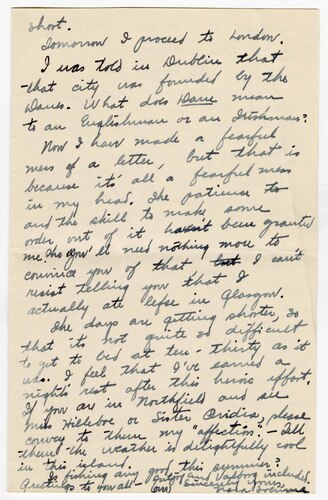 short.
Tomorrow I proceed to London.
I was told in Dublin that
that city was founded by the
Danes. What does Dane mean
to an Englishman or an Irishman?
Now I have made a fearful
mess of a letter, but that is
because it's all a fearful mess
in my head. The patience to
and the skill to make some
order out of it haven't been granted
me. You need nothing more to
convince you of that but I can't
resist telling you that I
actually ate lefse in Glasgow.
The days are getting shorter, so
that it's not quite so difficult
to get to bed at ten-thirty as it
was. I feel that I've earned a
night's rest after this heroic effort.
If you are in Northfield and see
Miss Hilleboe or Sister Oridia, please
convey to them my "affection" - Tell
them the weather is delightfully cool
in this island.
Is fishing any good this summer?
Greetings to you all - and Valborg included.
Sincerely yours,